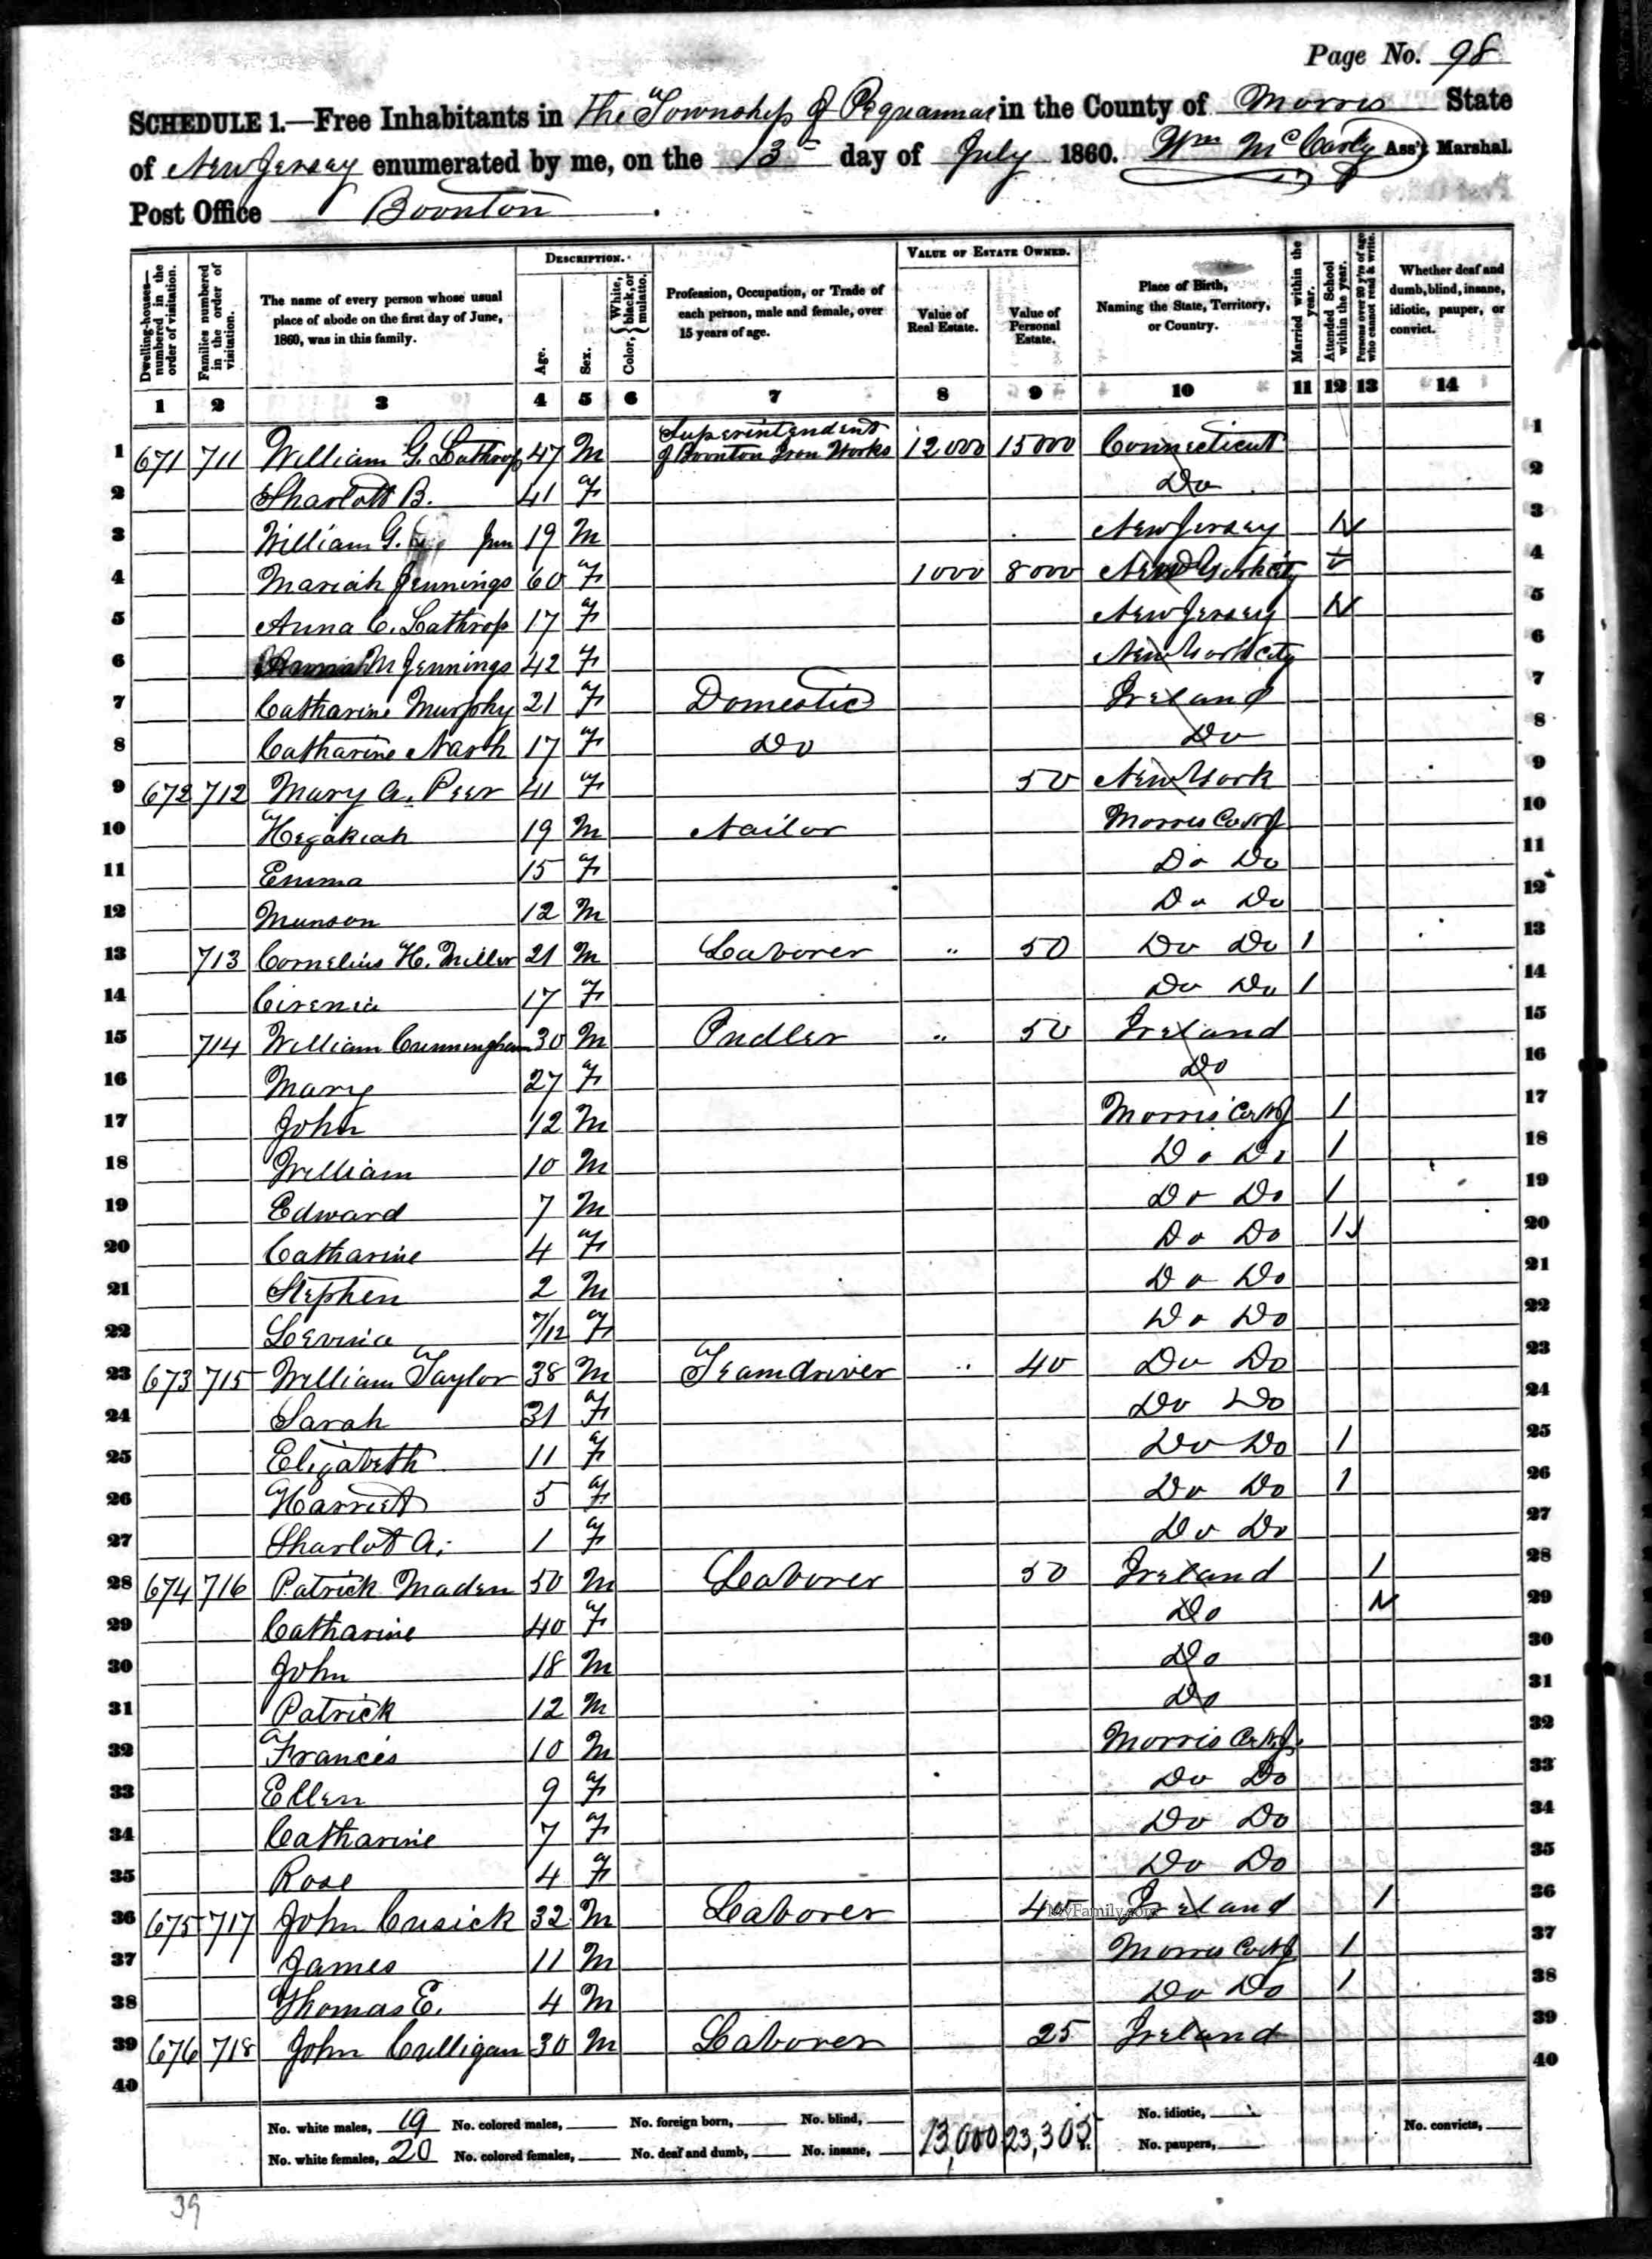 Page No. 98
SCHEDULE 1.—Free Inhabitants in The Township of Pequannac in the County of Morris State
of New Jersey enumerated by me, on the 13 day of July 1860. Wm McCarty Ass't Marshal.
Post Office Boonton
Dwelling-houses—numbered in the order of visitation.
Families numbered in the order of visitation.
The name of every person whose usual place of abode on the first day of June, 1860, was in this family.
DESCRIPTION.
Age.
Sex.
Color, { White, black, or mulatto.
Profession, Occupation, or Trade of each person, male and female, over 15 years of age.
VALUE OF ESTATE OWNED.
Value of Real Estate.
Value of Personal Estate.
Place of Birth, Naming the State, Territory, or Country.
Married within the year.
Attended School within the year.
Persons over 20 y'rs of age who cannot read & write.
Whether deaf and dumb, blind, insane, idiotic, pauper, or convict.
1 2 3 4 5 6 7 8 9 10 11 12 13 14
1 671 711 William G. Lathrop 47 M Superintendent of Boonton Iron Works 12000 15000 Connecticut 1
2 Sharlott B. 41 F Do 2
3 William G. Jun 19 M New Jersey 3
4 Mariah Jennings 60 F 1000 8000 New York City 4
5 Anna C. Lathrop 17 F New Jersey 5
6 M Jennings 42 F New York City 6
7 Catharine Murphy 21 F Domestic Ireland 7
8 Catharine Nash 17 F Do Do 8
9 672 712 Mary A. Peer 41 F 50 New York 9
10 Hezakiah 19 M Nailor Morris Co NJ 10
11 Emma 15 F Do Do 11
12 Munson 12 M Do Do 12
13 713 Cornelius H. Miller 21 M Laborer " 50 Do Do 1 13
14 Cirenia 17 F Do Do 1 14
15 714 William Cunningham 30 M Pudler " 50 Ireland 15
16 Mary 27 F Do 16
17 John 12 M Morris Co NJ 1 17
18 William 10 M Do Do 1 18
19 Edward 7 M Do Do 1 19
20 Catharine 4 F Do Do 1 20
21 Stephen 2 M Do Do 21
22 Levinia 7/12 F Do Do 22
23 673 715 William Taylor 38 M Teamdriver " 40 Do Do 23
24 Sarah 31 F Do Do 24
25 Elizabeth 11 F Do Do 1 25
26 Harriet 5 F Do Do 1 26
27 Sharlot A. 1 F Do Do 27
28 674 716 Patrick Maden 50 M Laborer 50 Ireland 1 28
29 Catharine 40 F Do 29
30 John 18 M Do 30
31 Patrick 12 M Do 31
32 Francis 10 M Morris Co NJ 32
33 Ellen 9 F Do Do 33
34 Catharine 7 F Do Do 34
35 Rose 4 F Do Do 35
36 675 717 John Cusick 32 M Laborer 40 Ireland 1 36
MyFamily.com
37 James 11 M Morris Co NJ 1 37
38 Thomas E. 4 M Do Do 1 38
39 676 718 John Culligan 30 M Laborer 25 Ireland 39
40 40
No. white males, 19 No. colored males, No. foreign born, No. blind, 13,000 23,305 No. idiotic, No. convicts,
No. white females, 20 No. colored females, No. deaf and dumb, No. insane, No. paupers,
39